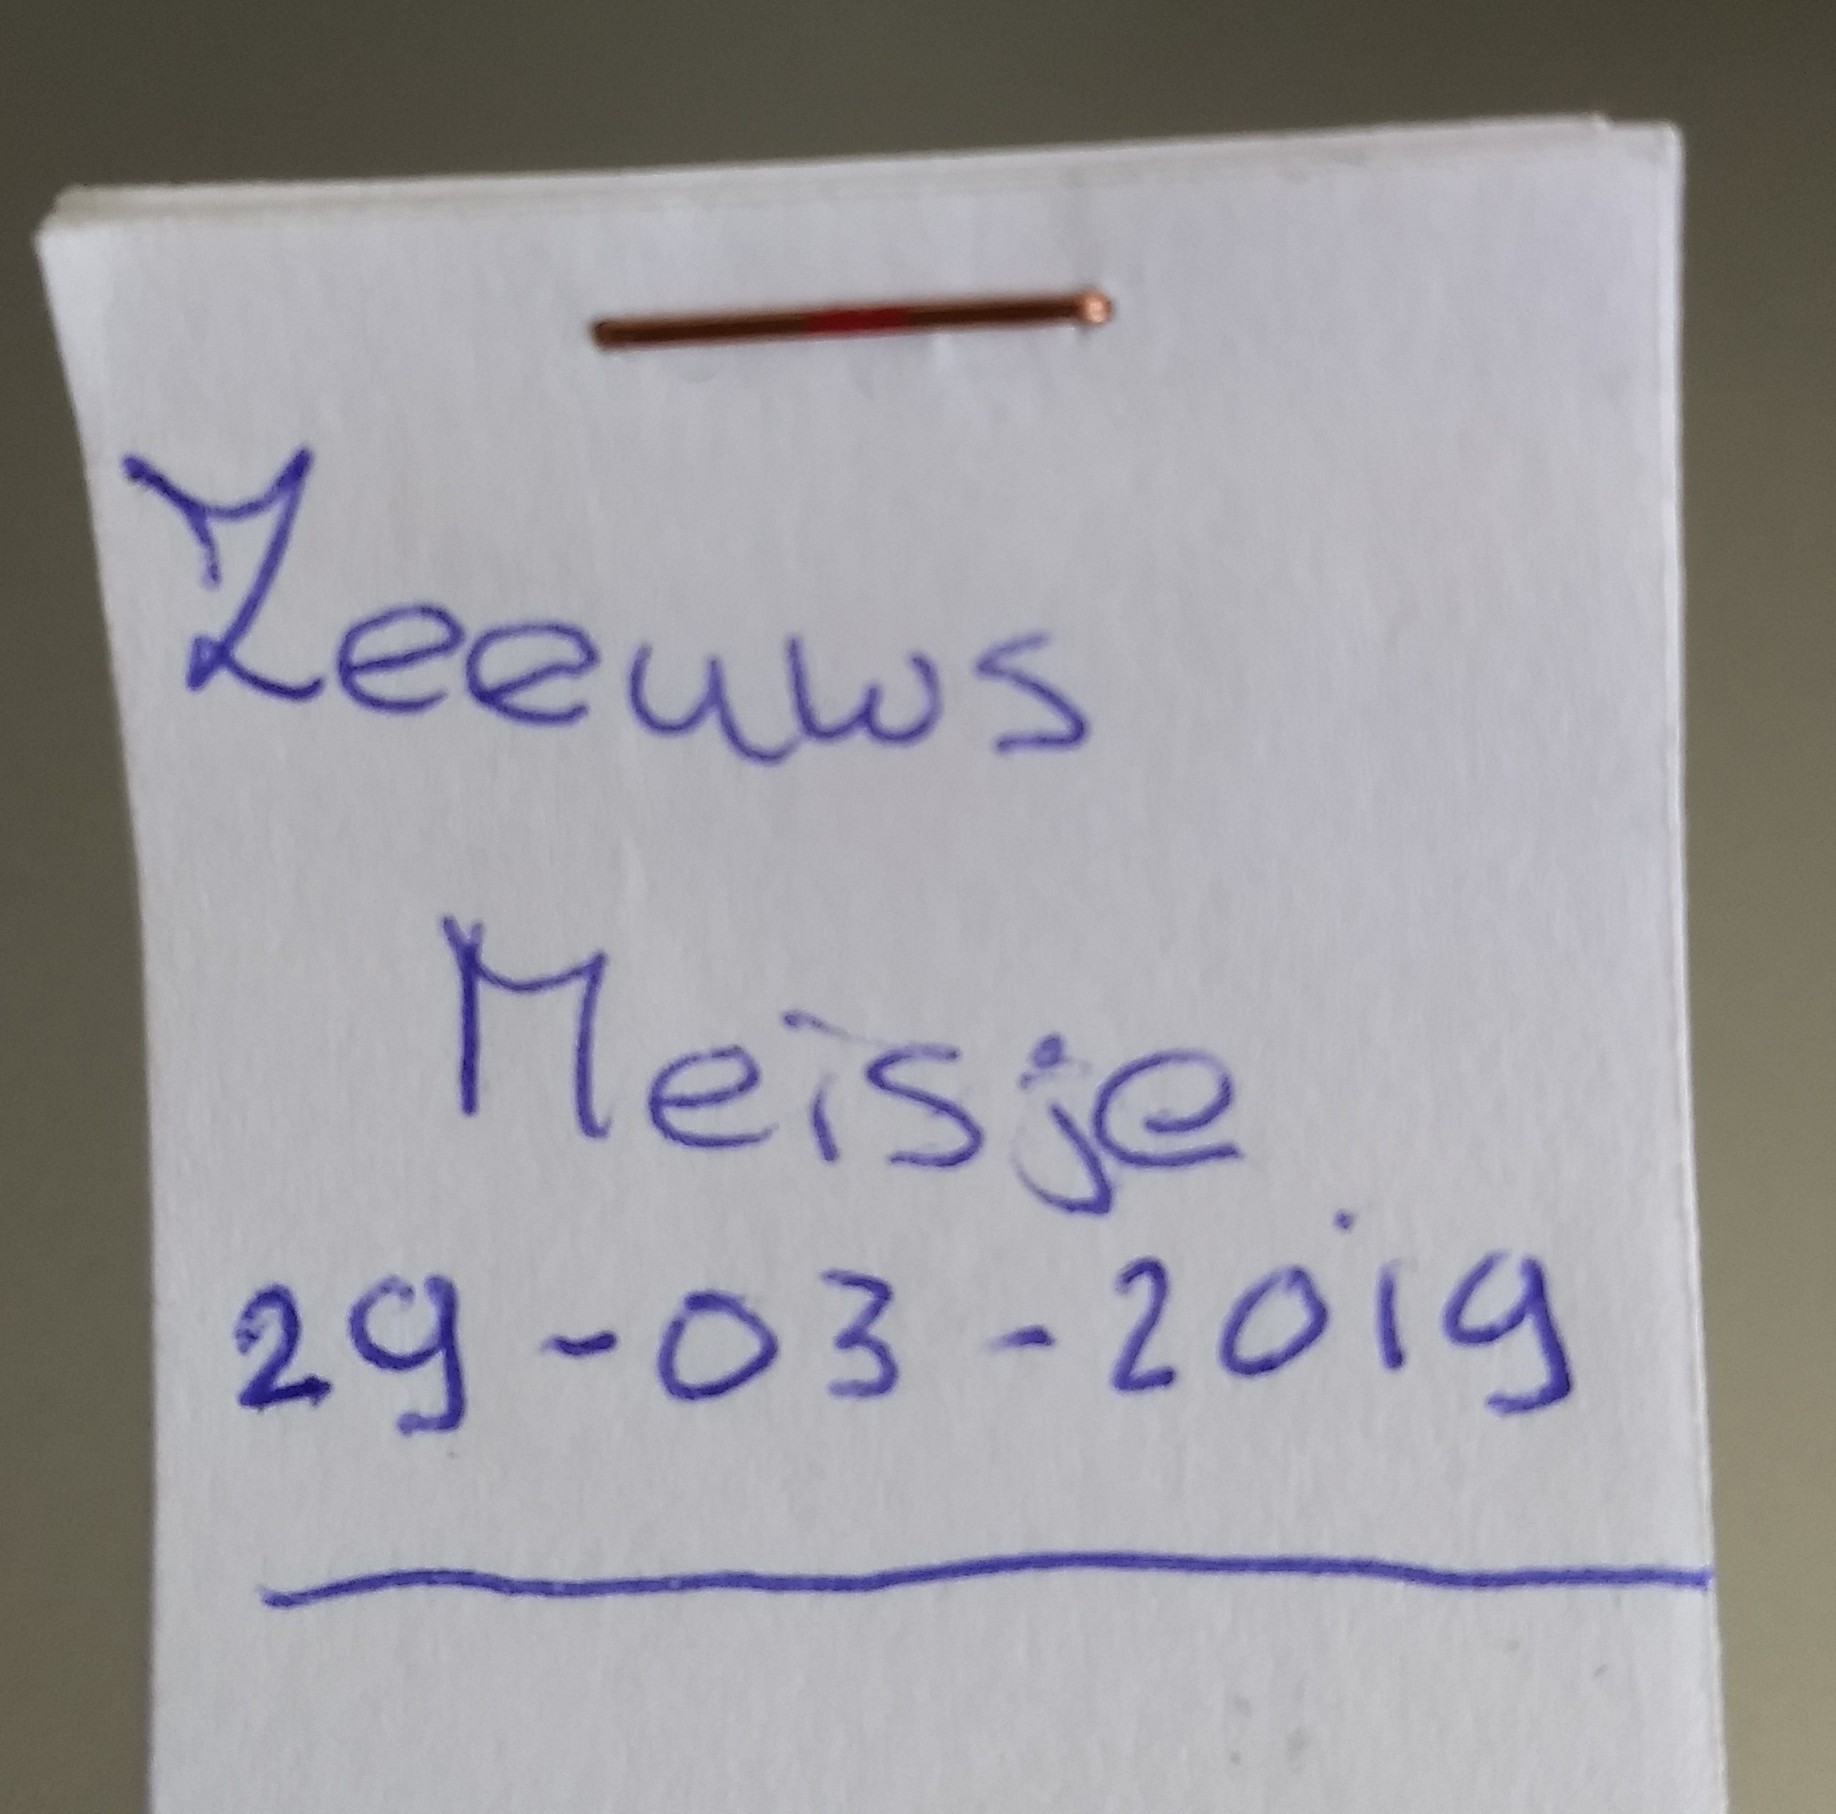 Zeeuws
Meisje
29-03-2019